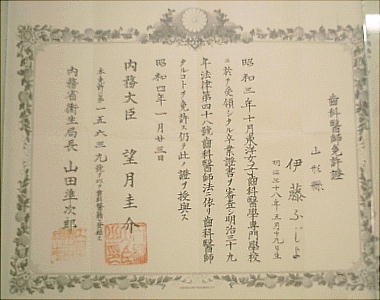 齒科醫師免許證
山形縣
伊藤ふじよ
明治三十八年五月十九日生
昭和三年十月東洋女子齒科醫學專門學校
ニ於テ受領シタル卒業證書ヲ審査シ明治三十九
年法律第四十八號齒科醫師法ニ依リ齒科醫師
タルコトヲ免許ス仍テ此ノ證ヲ授與ス
昭和四年一月廿三日
內務大臣 望月圭介
本免許ハ第一五六三九號ヲ以テ齒科醫籍ニ登錄ス
內務省衞生局長 山田準次郎